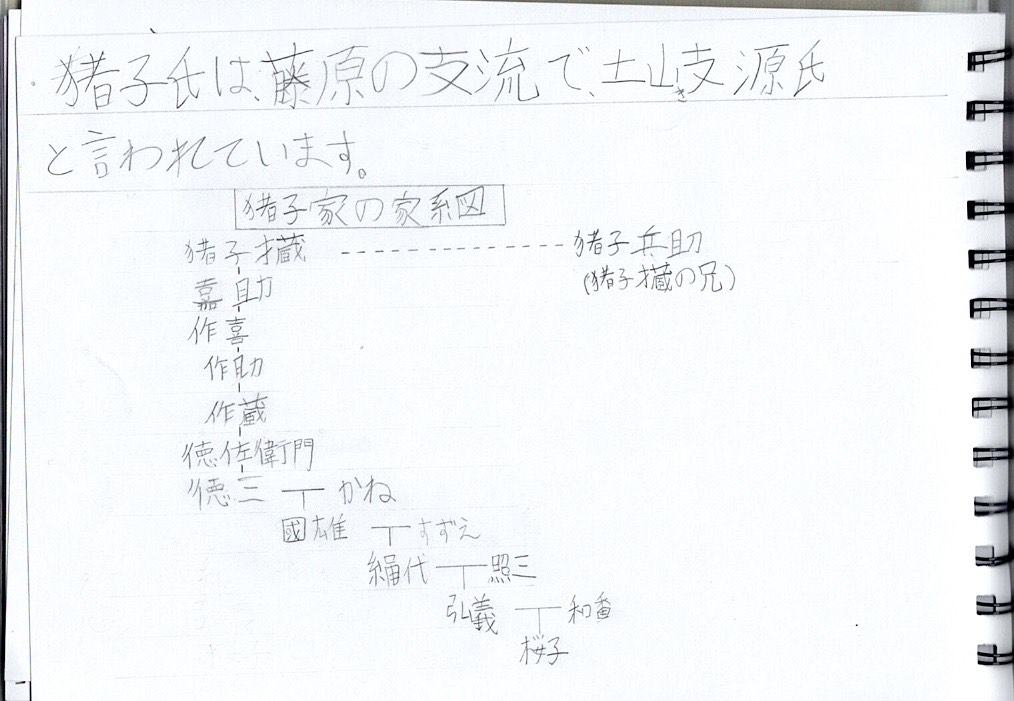 ・猪子氏は、藤原の支流で、土山支源氏
き
と言われています。
猪子家の家系図
猪子才蔵 猪子兵助
(猪子才蔵の兄)
嘉助
作喜
作助
作蔵
徳佐衛門
徳三 かね
國雄 すずえ
絹代 照三
弘義 和香
桜子